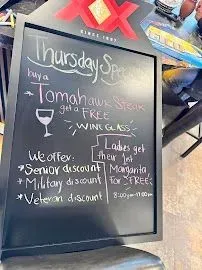 XX
SINCE 1897
Thursday Spe
buy a
*Tomahawk Steak
get a FREE
WINE GLASS
We offer:
*Senior discount
*Military discount
*Veteran discount
Ladies get
their 1st
Margarita
for "FREE"
8:00pm-11:00pm